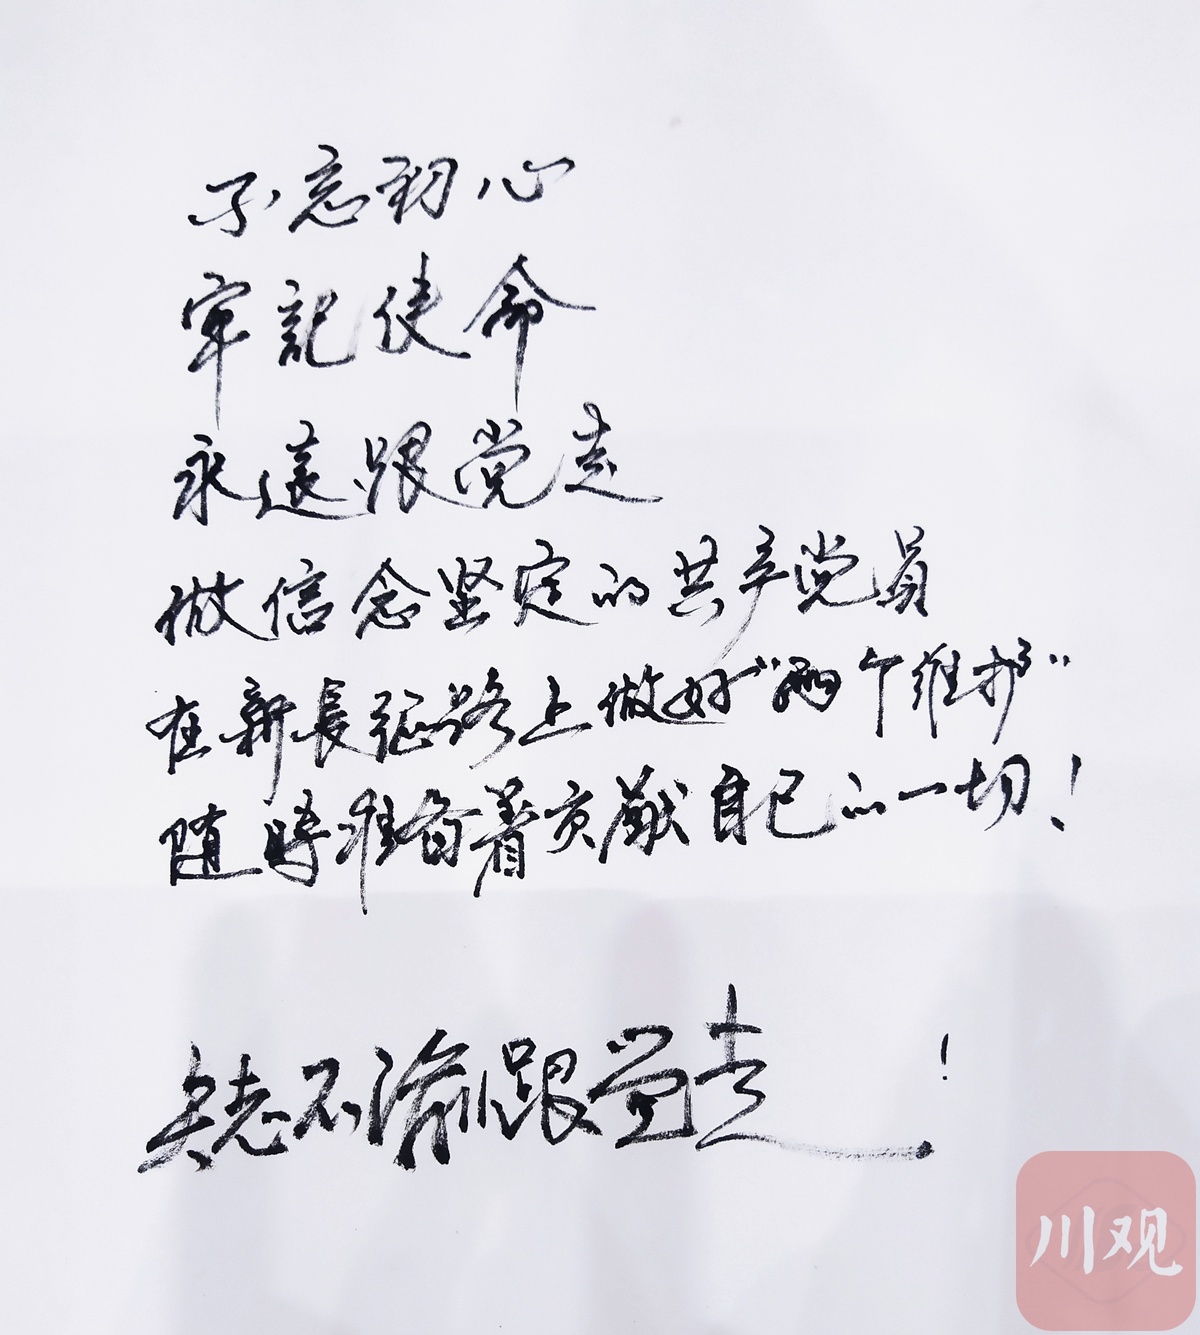 不忘初心
牢記使命
永遠跟党走
做信念坚定的共产党员
在新長征路上做好“两个维护”
随時准备着贡献自己的一切！
矢志不渝跟党走！
川观